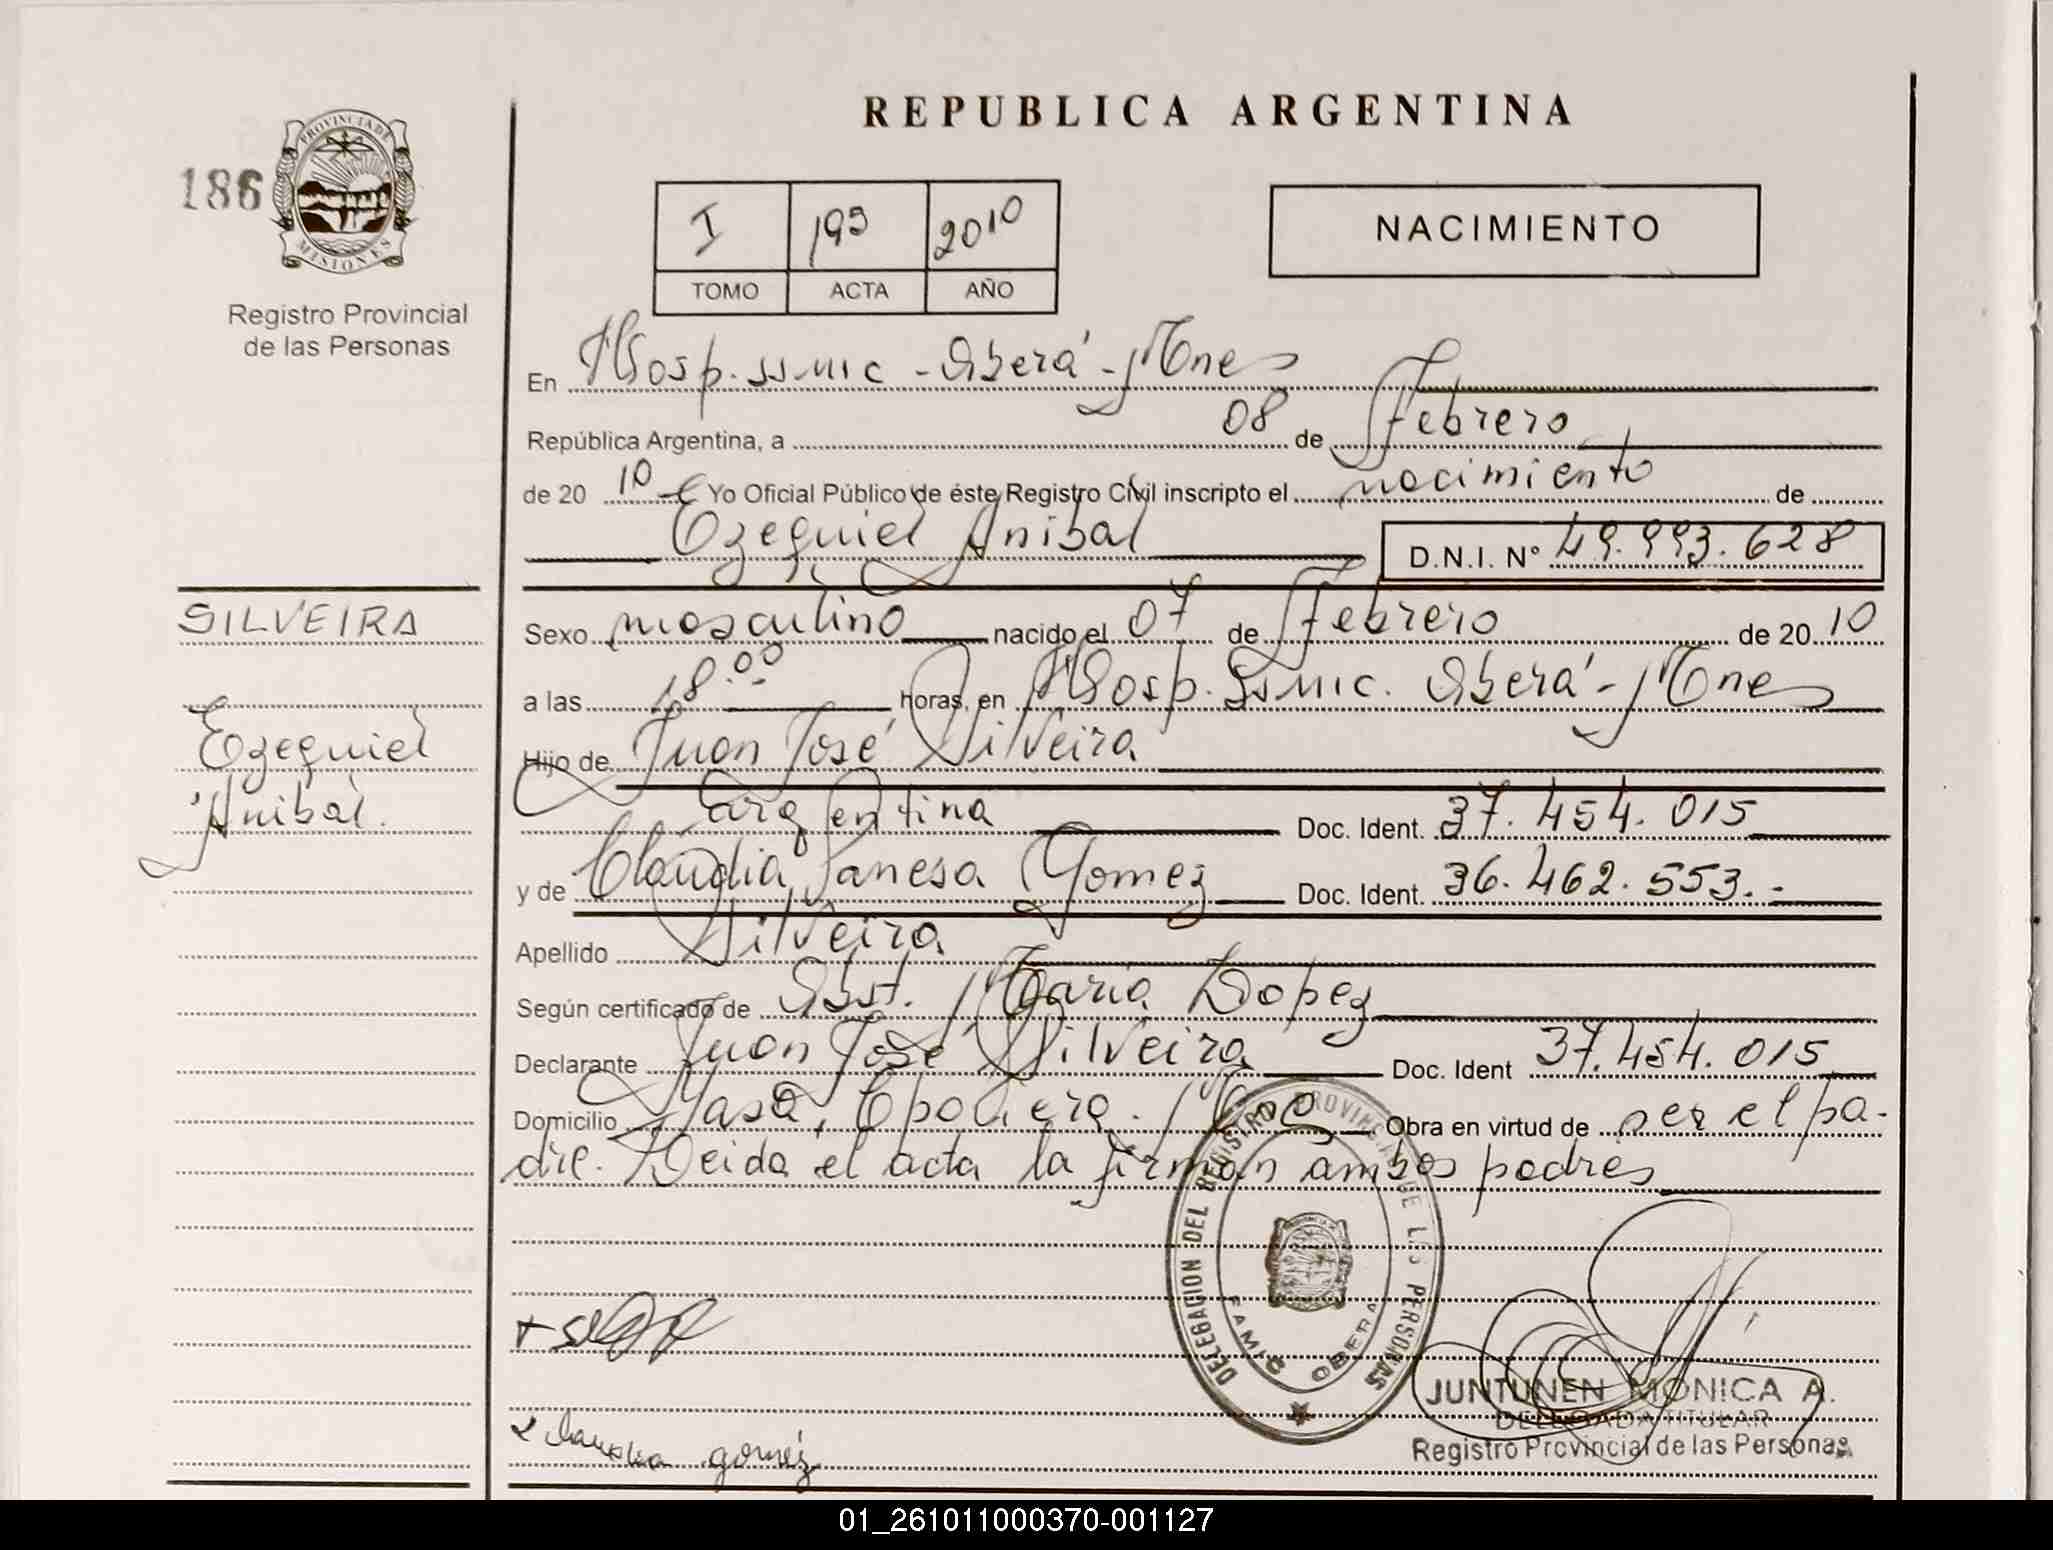 REPUBLICA ARGENTINA
186
PROVINCIA DE
MISIONES
Registro Provincial
de las Personas
I 195 2010
TOMO ACTA AÑO
NACIMIENTO
En Hosp. SSMIC - Oberá - Mnes
República Argentina, a 08 de Febrero
de 20 10 Yo Oficial Público de éste Registro Civil inscripto el nacimiento de
Ezequiel Anibal D.N.I. Nº 49.993.628
SILVEIRA
Ezequiel
Anibal.
Sexo masculino nacido el 07 de Febrero de 20 10
a las 18.00 horas, en Hosp. SSMIC. Oberá - Mnes
Hijo de Juan José Silveira
argentina Doc. Ident. 37.454.015
y de Claudia Vanesa Gomez Doc. Ident. 36.462.553.-
Apellido Silveira
Según certificado de Obst. Maria Lopez
Declarante Juan José Silveira Doc. Ident 37.454.015
Domicilio Obra en virtud de ser el pa-
dre. Leida el acta la firman ambos padres
DELEGACION DEL REGISTRO PROVINCIAL DE LAS PERSONAS
OBERA
gomez
JUNTUNEN MONICA A.
DELEGADA TITULAR
Registro Provincial de las Personas
01_261011000370-001127